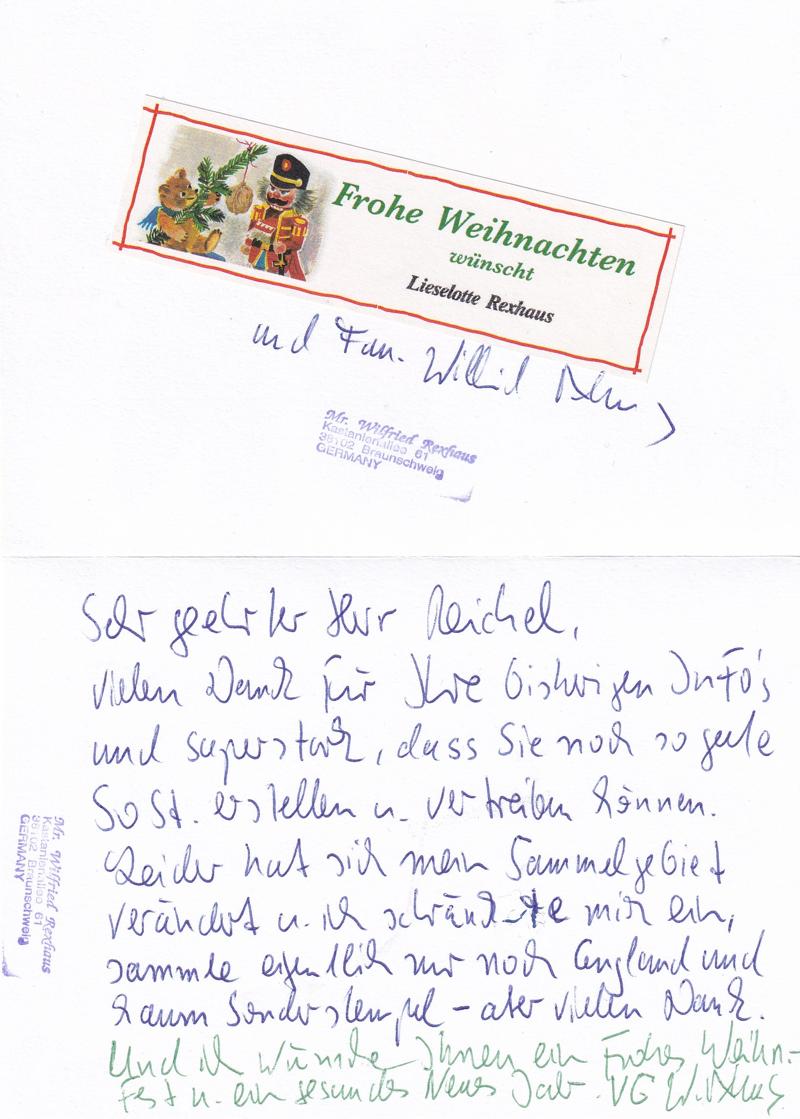 Frohe Weihnachten
wünscht
Lieselotte Rexhaus
und Fam. Wilfried
Mr. Wilfried Rexhaus
Kastanienallee 61
38102 Braunschweig
GERMANY
Sehr geehrter Herr Reichel,
vielen Dank für Ihre bisherigen Info's
und superstark, dass Sie noch so gute
SoSt. erstellen u. vertreiben können.
Leider hat sich mein Sammelgebiet
verändert u. ich schränkte mich ein,
sammle eigentlich nur noch England und
kaum Sonderstempel – aber vielen Dank.
Und ich wünsche Ihnen ein Frohes Weihn.-
Fest u. ein gesundes Neues Jahr. VG W.
Mr. Wilfried Rexhaus
Kastanienallee 61
38102 Braunschweig
GERMANY